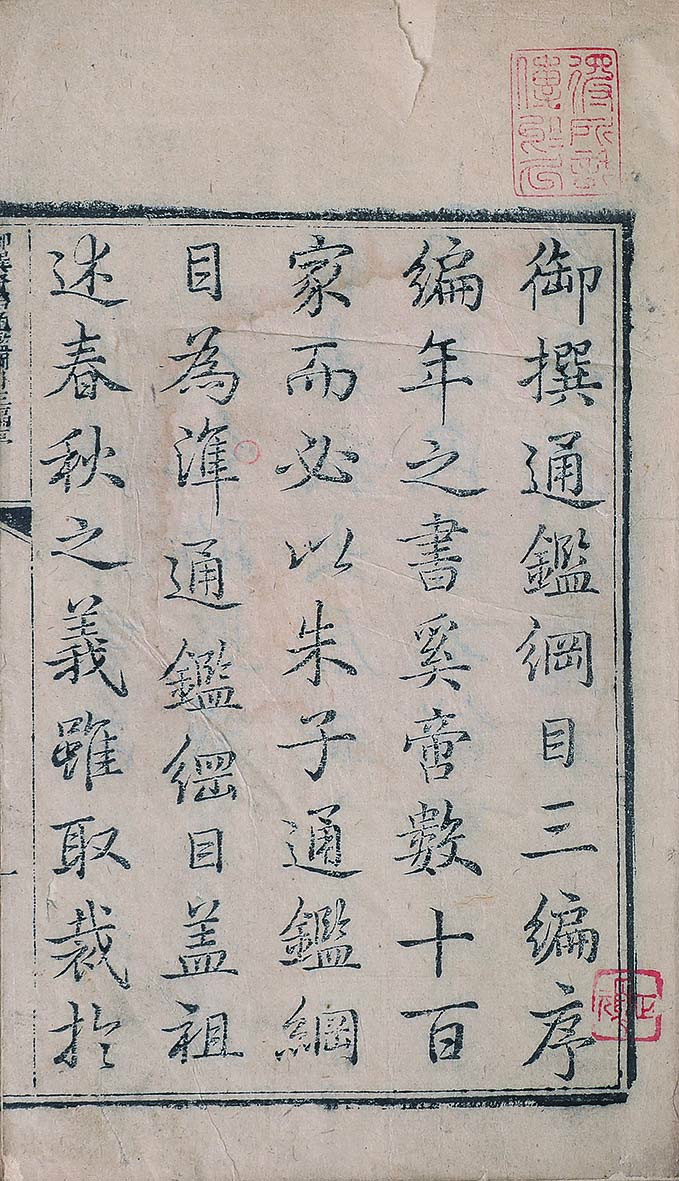 御撰通鑑綱目三編序
編年之書奚啻數十百
家而必以朱子通鑑綱
目為準通鑑綱目蓋祖
述春秋之義雖取裁於